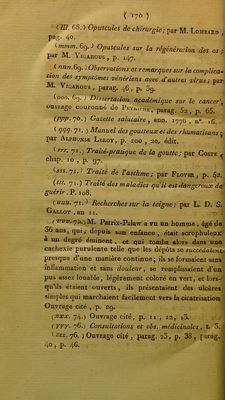 ( 170 )
(lll. 68.) Opuscules de chirurgie; par M. LOMBARD,
pag. 40.
(mmm. 69.) Opuscules sur la régénération des os;
par M. VIGAROUS, p. 147.
(nnn. 69.) Observations et remarques sur la complica-
tion des symptômes vénériens avec d'autres virus; par
M. VIGAROUS, parag. 46, p. 39.
(ooo. 69.) Dissertation académique sur le cancer,
ouvrage couronné de PEYRILHE, parag. 52, p. 65.
(ppp. 70.) Gazette salutaire, ann. 1776, n°. 16.
(qqq. 71.) Manuel des goutteux et des rhumatisans;
par ALPHONSE LEROY, p. 200, 20, édit.
(rrr. 71.) Traité-pratique de la goutte; par COSTE,
chap. 10, p. 97.
(sss. 71.) Traité de l'asthme; par FLOYER, p. 52.
(ttt. 71.) Traité des maladies qu'il est dangereux de
guérir. P. 108.
(uuu. 71.) Recherches sur la teigne; par L. D. S.
GALLOT, an 11.
(vvv. 72.) M. Patrix-Pulaw a vu un homme, âgé de
36 ans, qui, depuis son enfance, était scrophuleux
à un degré éminent, et qui tomba alors dans une
cachexie purulente telle que les dépôts se succédaient
presque d'une manière continue; ils se formaient sans
inflammation et sans douleur, se remplissaient d'un
pus assez louable, légèrement coloré en vert, et lors-
qu'ils étaient ouverts, ils présentaient des ulcères
simples qui marchaient facilement vers la cicatrisation
Ouvrage cité, p. 29.
(xxx. 74.) Ouvrage cité, p. 11, 12, 13.
(yyy. 76.) Consultations et obs. médicinales, t. 3.
(zzz. 76.) Ouvrage cité, parag. 23, p. 38, parag.
40, p. 46.